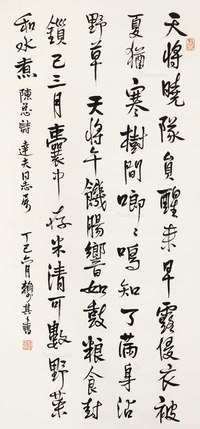 天將曉隊員醒来早露侵衣被
夏猶寒樹間唧唧鳴知了滿身沾
野草 天將午饑腸響如鼓粮食封
鎖已三月囊中存米清可數野菜
和水煮 陳總詩 達夫同志属 丁巳六月賴少其書